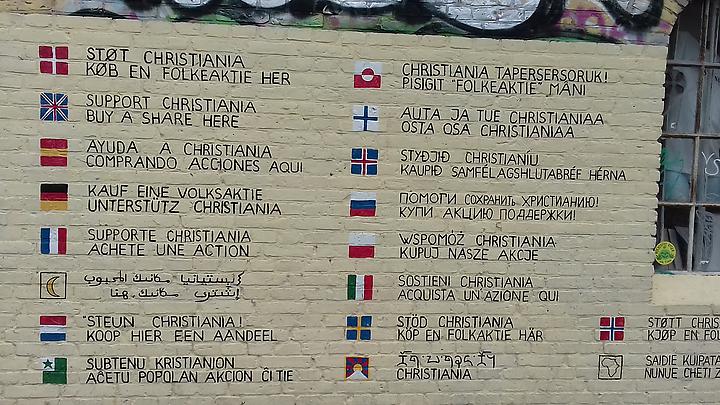 STØT CHRISTIANIA
KØB EN FOLKEAKTIE HER
SUPPORT CHRISTIANIA
BUY A SHARE HERE
AYUDA A CHRISTIANIA
COMPRANDO ACCIONES AQUI
KAUF EINE VOLKSAKTIE
UNTERSTÜTZ CHRISTIANIA
SUPPORTE CHRISTIANIA
ACHETE UNE ACTION
"STEUN CHRISTIANIA!
KOOP HIER EEN AANDEEL
SUBTENU KRISTIANION
AĈETU POPOLAN AKCION ĈI TIE
CHRISTIANIA TAPERSERSORUK!
PISIGIT "FOLKEAKTIE" MANI
AUTA JA TUE CHRISTIANIAA
OSTA OSA CHRISTIANIAA
STYÐJIÐ CHRISTIANÍU
KAUPIÐ SAMFÉLAGSHLUTABRÉF HÉRNA
ПОМОГИ СОХРАНИТЬ ХРИСТИАНИЮ!
КУПИ АКЦИЮ ПОДДЕРЖКИ!
WSPOMÓŻ CHRISTIANIA
KUPUJ NASZE AKCJE
SOSTIENI CHRISTIANIA
ACQUISTA UN'AZIONE QUI
STÖD CHRISTIANIA
KÖP EN FOLKAKTIE HÄR
CHRISTIANIA
STØTT CHRIS
KJØP EN FOL
SAIDIE KUIPATA
NUNUE CHETI Z